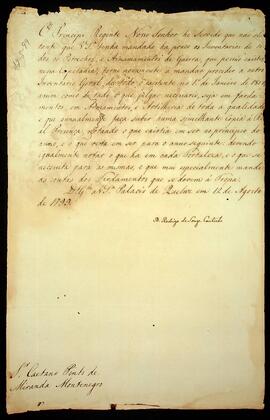 O Principe Regente Nosso Senhor he Servido que não obstante
que V. S.ª tenha mandado ha pouco os Inventarios de todos
os Petrechos, e Armamentos de Guerra,
novamente a mandar proceder a outro
Inventario Geral do 1º de Janeiro de
como de tudo o que julgar necessario, seja em fardamentos,
em Armamentos, e Artilheria de toda a qualidade
e que annualmente faça subir huma semelhante cópia á Real
Presença, notando o que existia em ser no principio do
anno, e o que resta em ser para o anno seguinte; devendo
igualmente notar o que ha em cada Fortaleza, e o que se
necessita para as mesmas, e que mui especialmente mande
as contas dos Fardamentos que se devem á Tropa.
Palacio de Queluz em 12 de Agosto
de 1799.
D. Rodrigo de Souza Coutinho
Sr. Caetano Pinto de
Miranda Montenegro